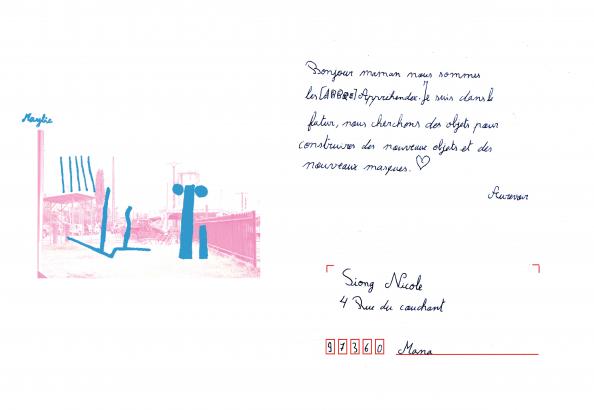 Maylie
Bonjour maman nous sommes
les [ARBRE] Apprehender. Je suis dans le
futur, nous cherchons des objets pour
construires des nouveaux objets et des
nouveaux masques.
Aurevoir
Siong Nicole
4 Rue du couchant
97360 Mana